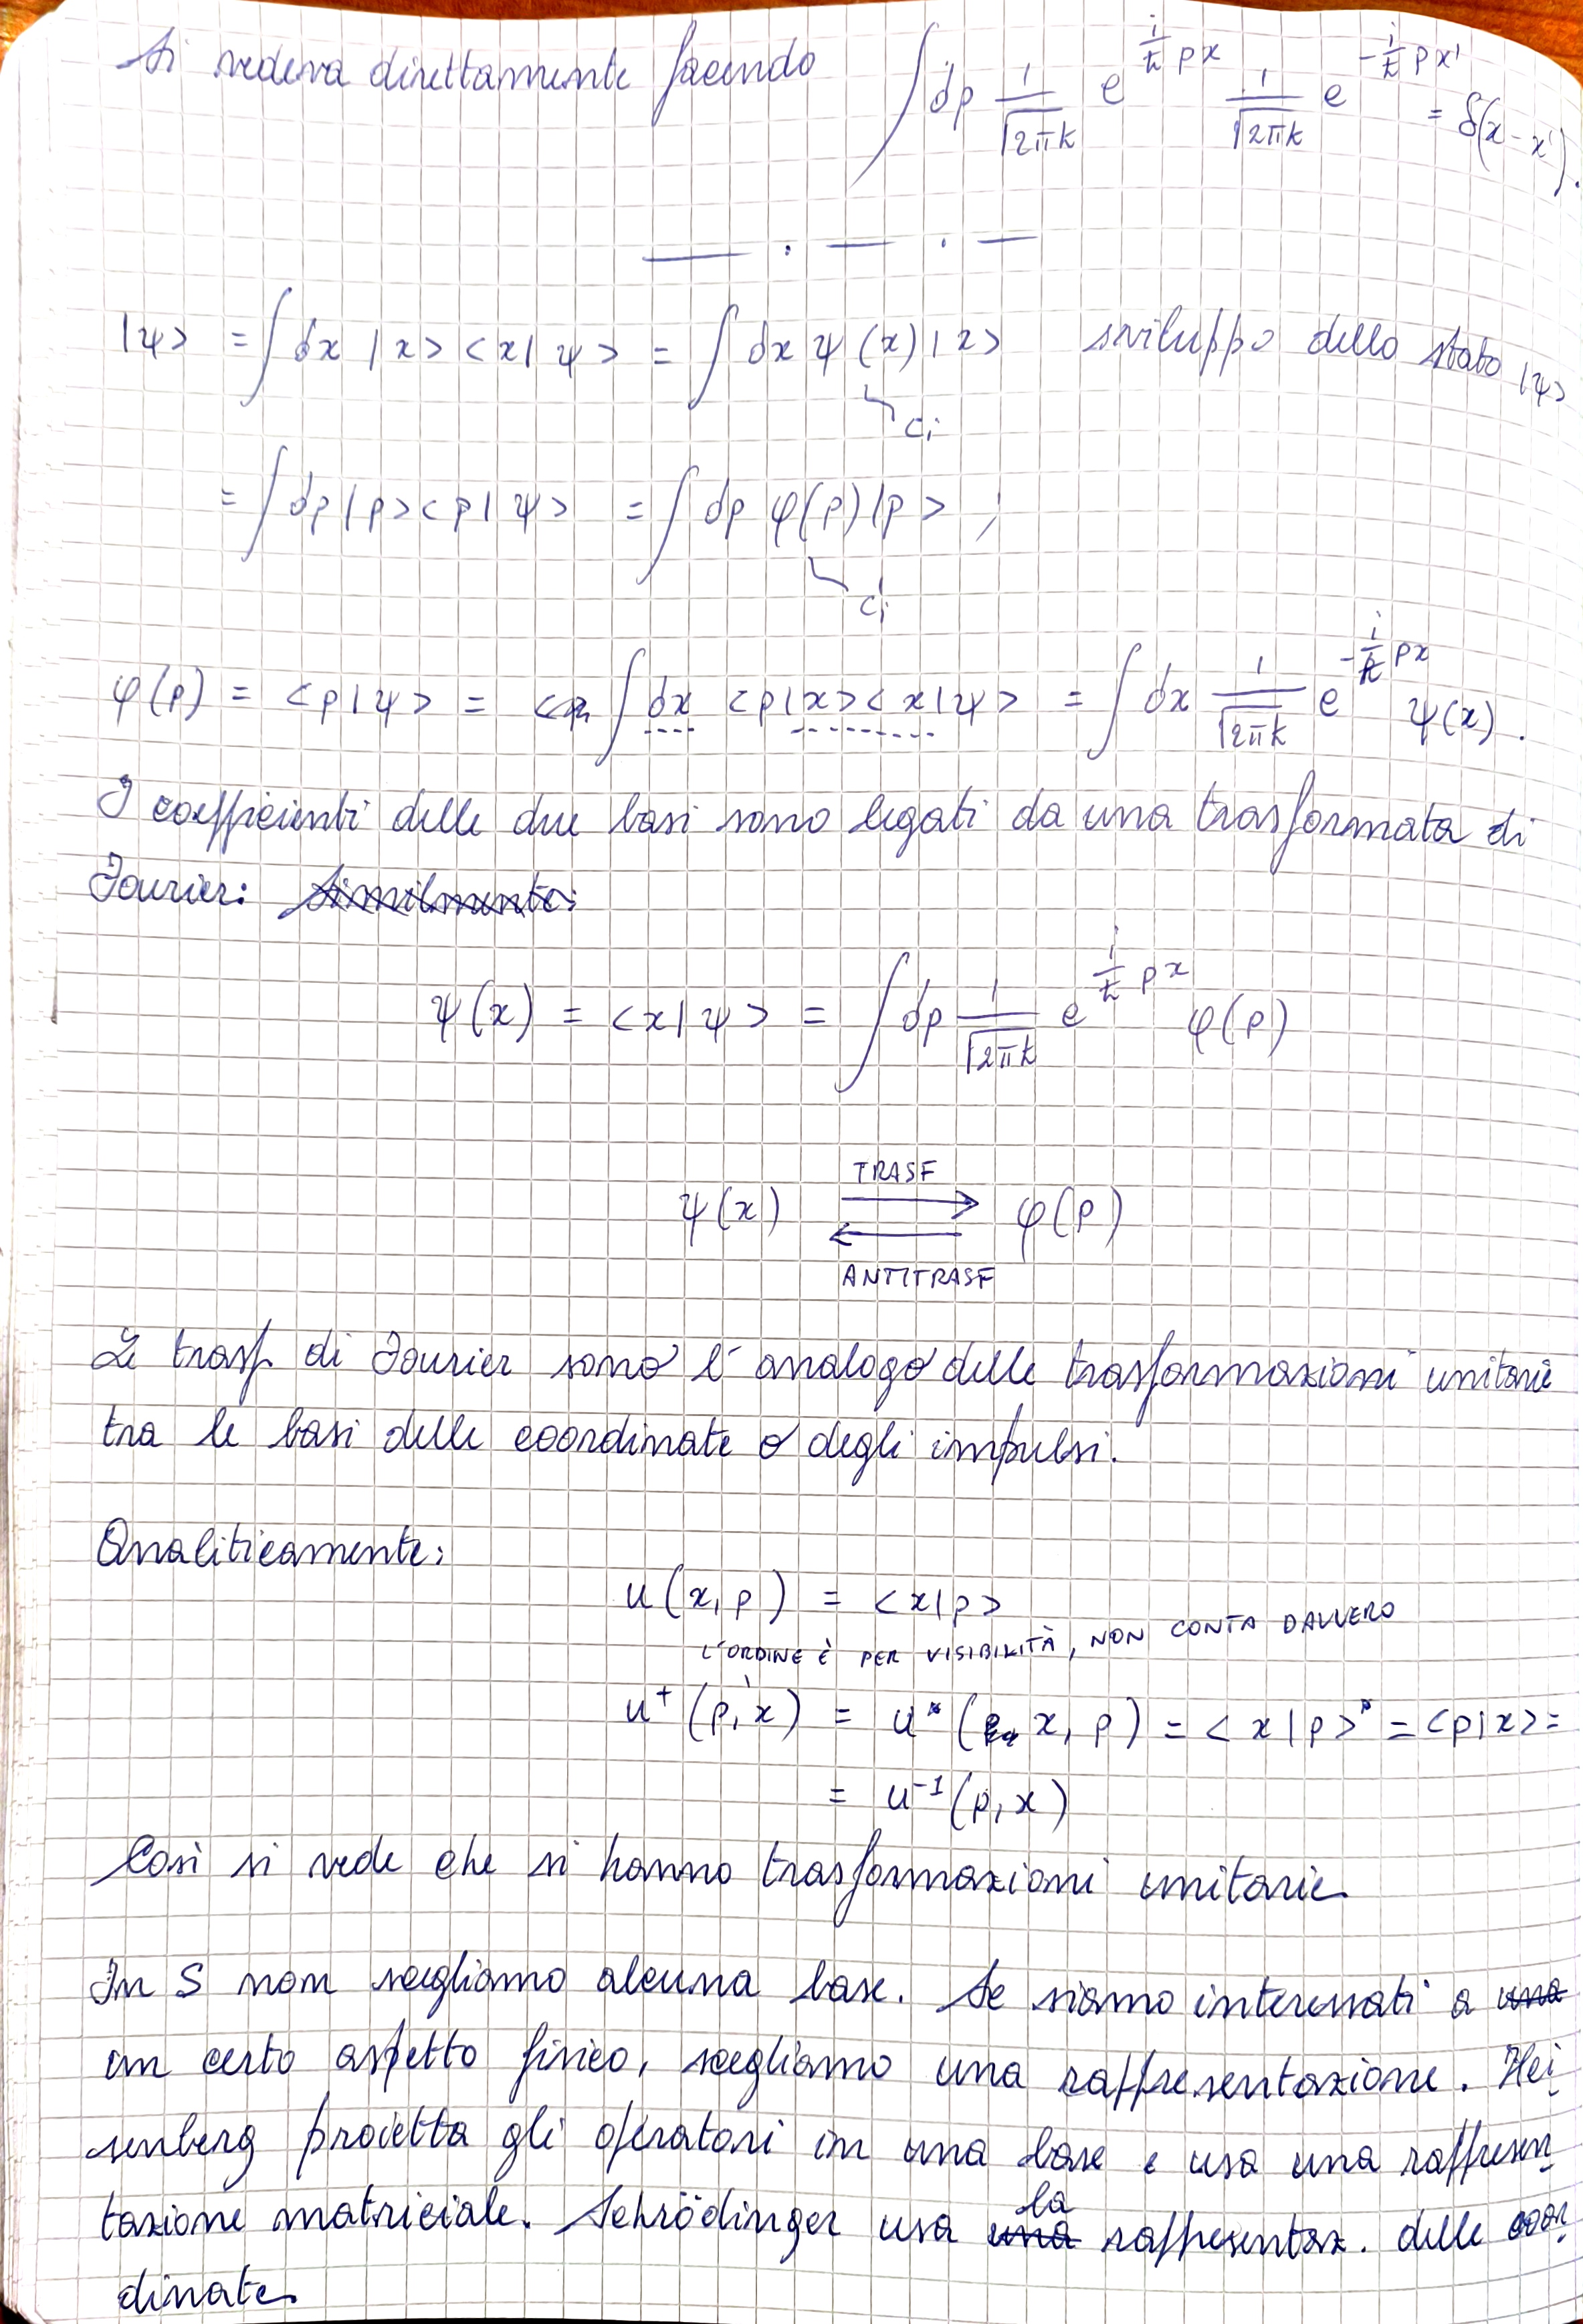 Si vedeva direttamente facendo ∫ dp 1/√2πħ e^{i/ħ px} 1/√2πħ e^{-i/ħ px'} = δ(x-x').
|ψ> = ∫ dx |x><x|ψ> = ∫ dx ψ(x)|x> sviluppo dello stato |ψ>
ci
= ∫ dp|p><p|ψ> = ∫ dp φ(p)|p> ;
c'i
φ(p) = <p|ψ> = ∫ dx <p|x><x|ψ> = ∫ dx 1/√2πħ e^{-i/ħ px} ψ(x).
I coefficienti delle due basi sono legati da una trasformata di
Fourier: Similmente:
ψ(x) = <x|ψ> = ∫ dp 1/√2πħ e^{i/ħ px} φ(p)
TRASF
ψ(x) ⇄ φ(p)
ANTITRASF
Le trasf. di Fourier sono l'analogo delle trasformazioni unitarie
tra le basi delle coordinate o degli impulsi.
Analiticamente:
u(x,p) = <x|p>
L'ORDINE È PER VISIBILITÀ, NON CONTA DAVVERO
u⁺(p,x) = u*(x,p) = <x|p>* = <p|x> =
= u⁻¹(p,x)
Così si vede che si hanno trasformazioni unitarie.
In S non scegliamo alcuna base. Se siamo interessati a una
un certo aspetto fisico, scegliamo una rappresentazione. Hei
senberg proietta gli operatori in una base e usa una rappresen
tazione matriciale. Schrödinger usa una la rappresentaz. delle coor
dinate.